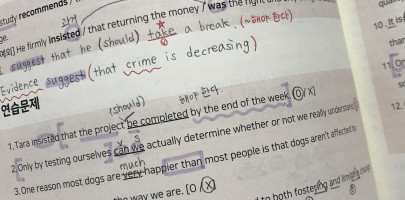 study recommends
예외] He firmly insisted / that returning the money / was the right
suggest that he (should) take a break. (~해야 한다)
Evidence suggest (that crime is decreasing)
연습문제
(should) 해야 한다.
1. Tara insisted that the project be completed by the end of the week. [O/X]
2. Only by testing ourselves can we actually determine whether or not we really understand
V S
much
3. One reason most dogs are very happier than most people is that dogs aren't affected
the way we are. [O/X]
to both fostering and
10. It is
11.
12.